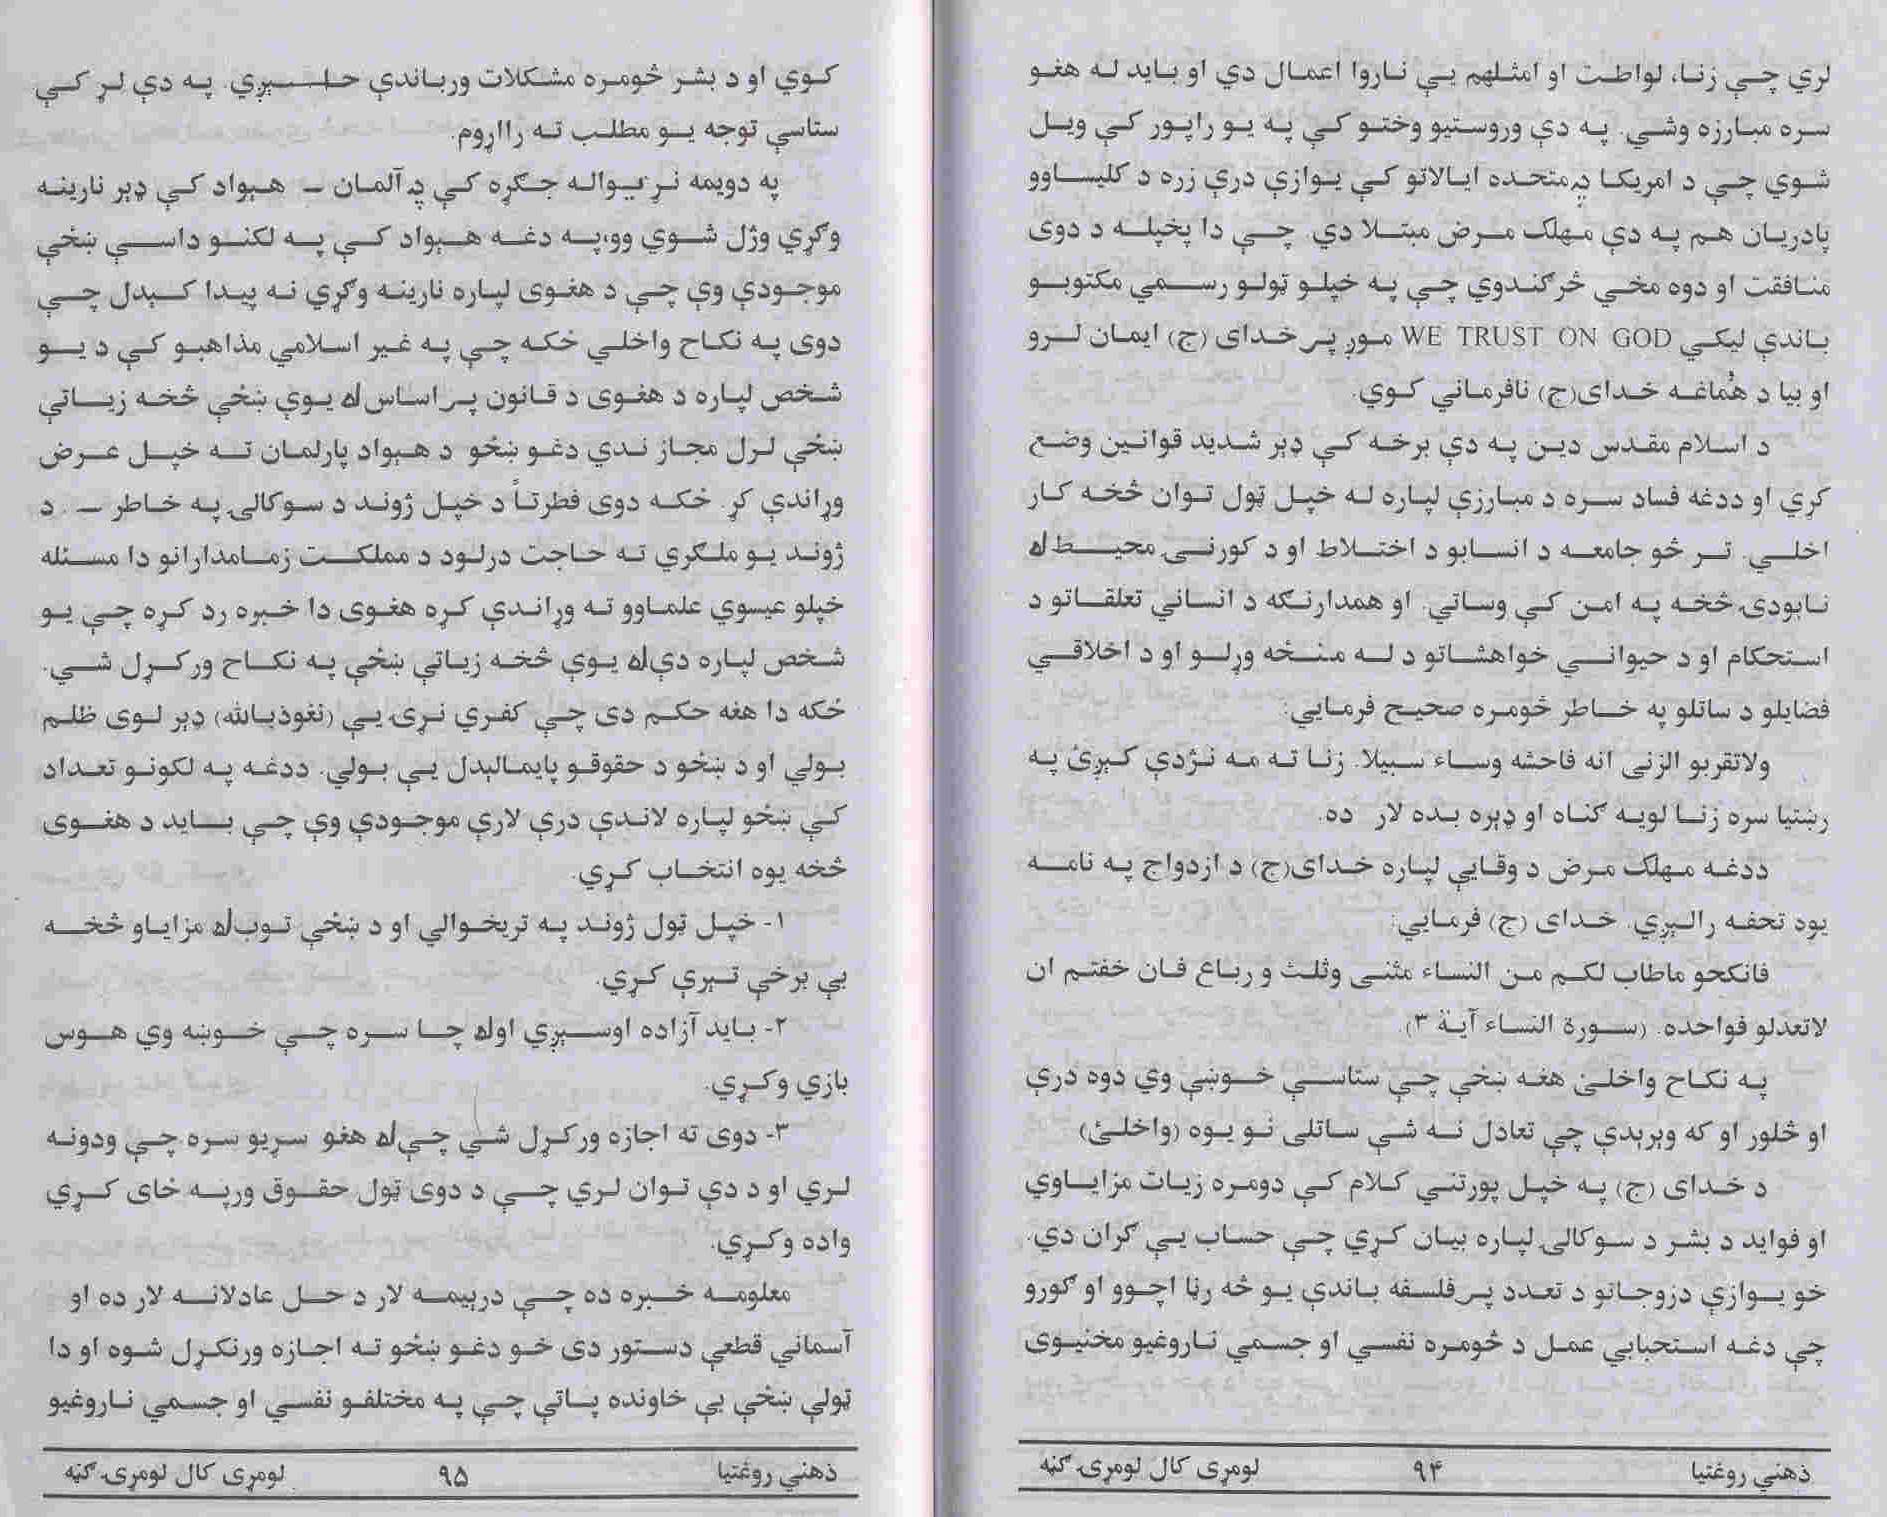 لري چې زنا، لواطت او امثلهم يې ناروا اعمال دي او بايد له هغو
سره مبارزه وشي. په دې وروستيو وختو کې په يو راپور کې ويل
شوي چې د امريکا په متحده ايالاتو کې يوازې درې زره د کليساوو
پادريان هم په دې مهلک مرض مبتلا دي. چې دا پخپله د دوی
منافقت او دوه مخي څرګندوي چې په خپلو ټولو رسمي مکتوبو
باندې ليکي WE TRUST ON GOD موږ پر خدای (ج) ايمان لرو
او بيا د هُماغه خدای(ج) نافرماني کوي.
د اسلام مقدس دين په دې برخه کې ډېر شديد قوانين وضع
کړي او ددغه فساد سره د مبارزې لپاره له خپل ټول توان څخه کار
اخلي. تر څو جامعه د انسابو د اختلاط او د کورنۍ محيط له
نابودۍ څخه په امن کې وساتي. او همدارنګه د انساني تعلقاتو د
استحکام او د حيواني خواهشاتو د له منځه وړلو او د اخلاقي
فضايلو د ساتلو په خاطر څومره صحيح فرمايي:
ولاتقربو الزنی انه فاحشه وساء سبيلا. زنا ته مه نژدې کېږئ په
رښتيا سره زنا لويه ګناه او ډېره بده لار ده.
ددغه مهلک مرض د وقايې لپاره خدای(ج) د ازدواج په نامه
يود تحفه رالېږي. خدای (ج) فرمايي:
فانکحو ماطاب لکم من النساء مثنی وثلث و رباع فان خفتم ان
لاتعدلو فواحده. (سورة النساء آية ۳).
په نکاح واخلئ هغه ښځې چې ستاسې خوښې وي دوه درې
او څلور او که وېرېدې چې تعادل نه شې ساتلی نو يوه (واخلئ)
د خدای (ج) په خپل پورتني کلام کې دومره زيات مزاياوې
او فوايد د بشر د سوکالۍ لپاره بيان کړي چې حساب يې ګران دي.
خو يوازې دزوجاتو د تعدد پر فلسفه باندې يو څه رڼا اچوو او ګورو
چې دغه استحبابي عمل د څومره نفسي او جسمي ناروغيو مخنيوی
ذهني روغتيا ۹۴ لومړی کال لومړۍ ګڼه
کوي او د بشر څومره مشکلات ورباندې حلېږي. په دې لړ کې
ستاسې توجه يو مطلب ته رااړوم.
په دويمه نړيواله جګړه کې د آلمان – هېواد کې ډېر نارينه
وګړي وژل شوي وو، په دغه هېواد کې په لکنو داسې ښځې
موجودې وې چې د هغوی لپاره نارينه وګړي نه پيدا کېدل چې
دوی په نکاح واخلي ځکه چې په غير اسلامي مذاهبو کې د يو
شخص لپاره د هغوی د قانون پر اساس له يوې ښځې څخه زياتې
ښځې لرل مجاز ندي دغو ښځو د هېواد پارلمان ته خپل عرض
وړاندې کړ. ځکه دوی فطرتاً د خپل ژوند د سوکالۍ په خاطر – د
ژوند يو ملګري ته حاجت درلود د مملکت زمامدارانو دا مسئله
خپلو عيسوي علماوو ته وړاندې کړه هغوی دا خبره رد کړه چې يو
شخص لپاره دې له يوې څخه زياتې ښځې په نکاح ورکړل شي.
ځکه دا هغه حکم دی چې کفري نړۍ يې (نغوذبالله) ډېر لوی ظلم
بولي او د ښځو د حقوقو پايمالېدل يې بولي. ددغه په لکونو تعداد
کې ښځو لپاره لاندې درې لارې موجودې وې چې بايد د هغوی
څخه يوه انتخاب کړي.
۱- خپل ټول ژوند په تريخوالي او د ښځې توب له مزاياو څخه
بې برخې تېرې کړي.
۲- بايد آزاده اوسېږي او له چا سره چې خوښه وي هوس
بازي وکړي.
۳- دوی ته اجازه ورکړل شي چې له هغو سړيو سره چې ودونه
لري او د دې توان لري چې د دوی ټول حقوق ورپه ځای کړي
واده وکړي.
معلومه خبره ده چې درېيمه لار د حل عادلانه لار ده او
آسماني قطعې دستور دی خو دغو ښځو ته اجازه ورنکړل شوه او دا
ټولې ښځې بې خاونده پاتې چې په مختلفو نفسي او جسمي ناروغيو
ذهني روغتيا ۹۵ لومړی کال لومړۍ ګڼه